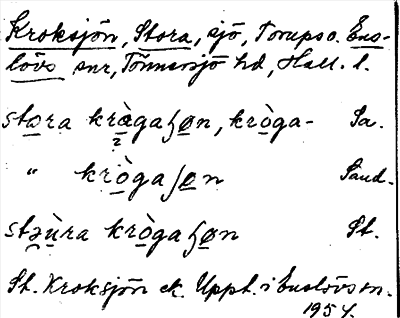 Kroksjön, Stora, sjö, Torups o. Ens-
lövs snr, Tönnersjö hd, Hall. l.
stora krògaʃøn, kròga- Sa.
" krògaʃøn Sand.
stəùra krògaʃøn St.
St. Kroksjön ek. Uppt. i Enslövs sn.
1954.